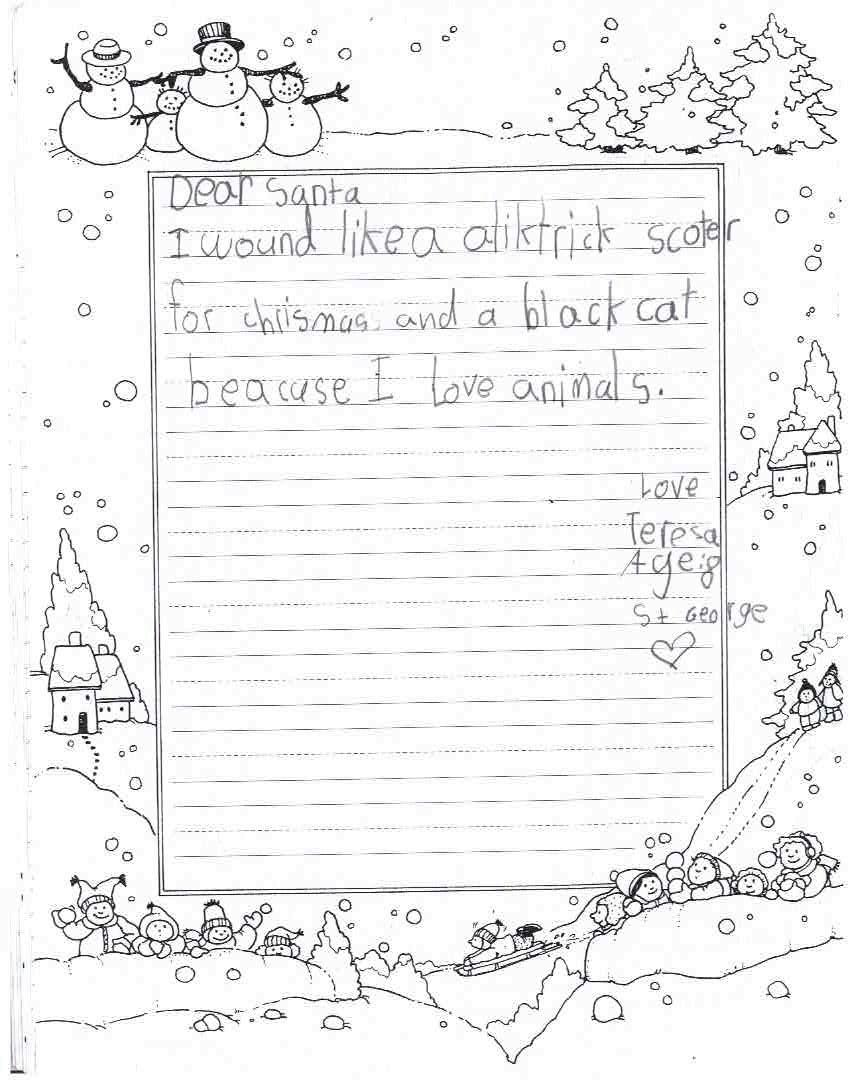 Dear Santa
I wound like a aliktrick scoter
for chrismas. and a black cat
beacuse I love animals.
Love
Teresa
Age:8
St George